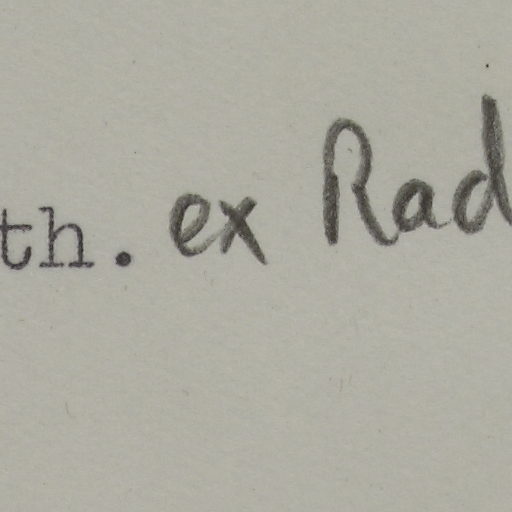 th. ex Rad